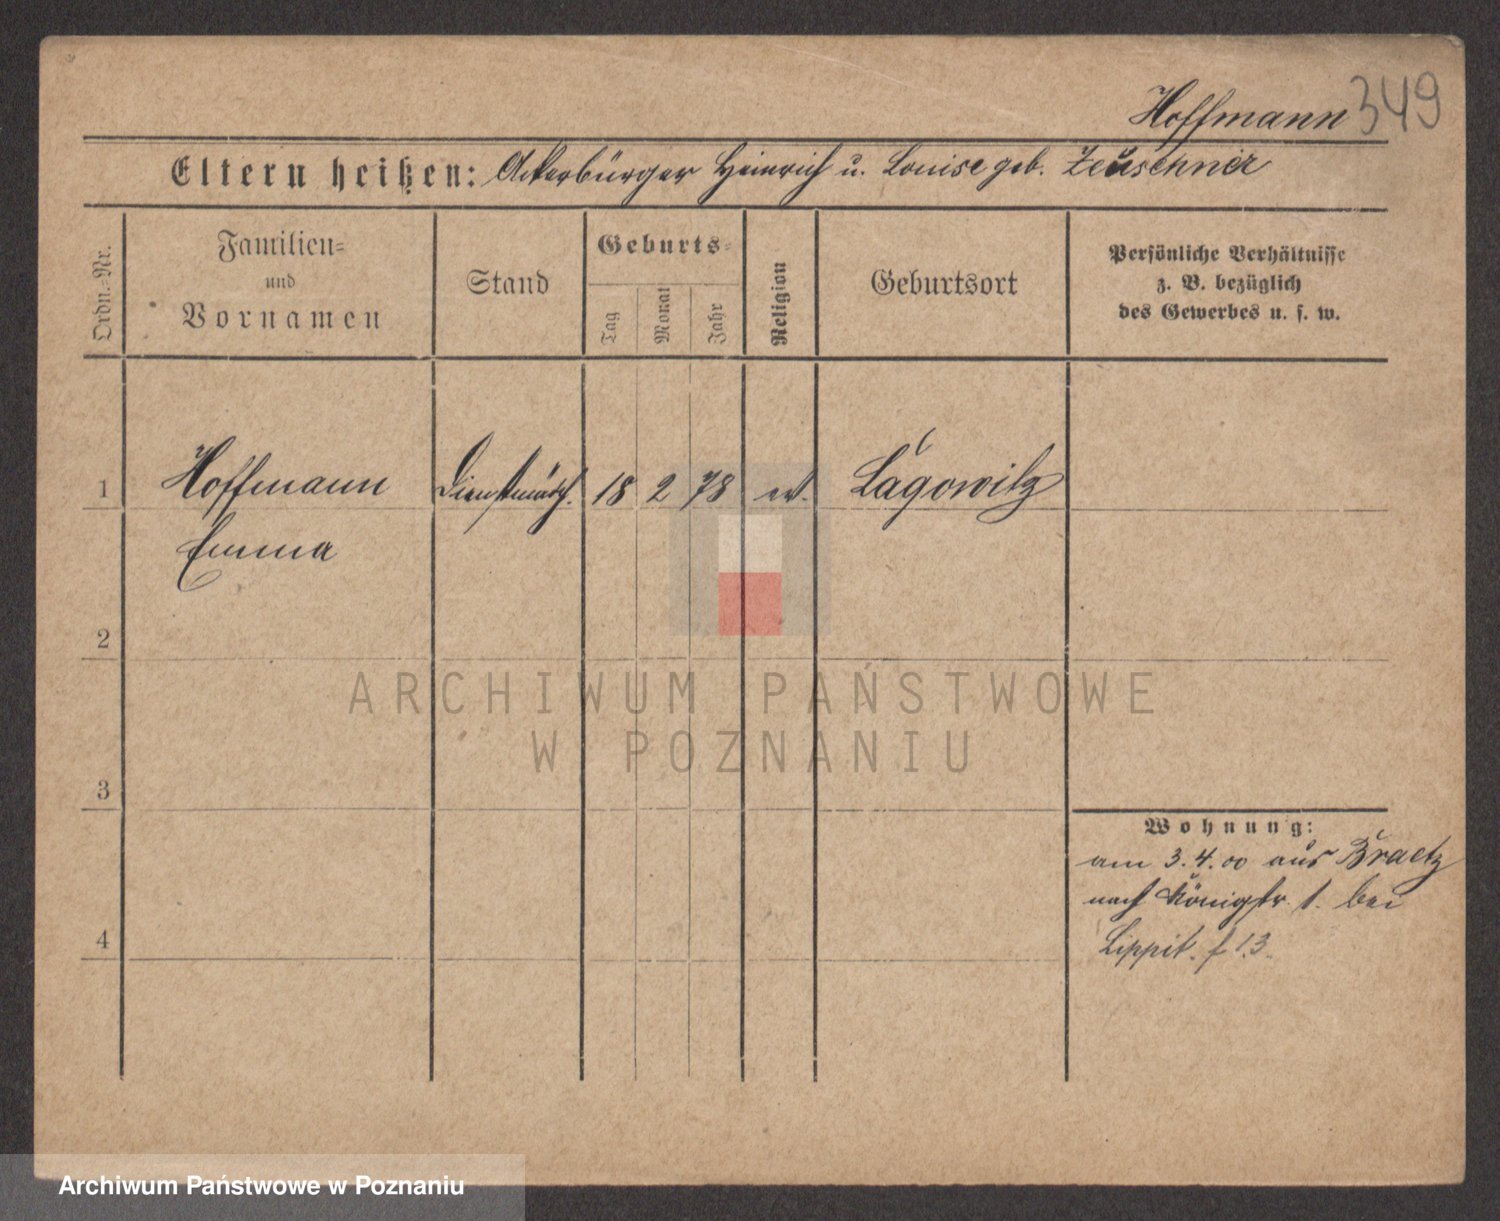 Hoffmann 349
Eltern heißen: Ackerbürger Heinrich u. Louise geb. Zeuschner
Ordn.=Nr.
Familien=
und
Vornamen
Stand
Geburts=
Tag
Monat
Jahr
Religion
Geburtsort
Persönliche Verhältnisse
z. B. bezüglich
des Gewerbes u. s. w.
1 Hoffmann Dienstmädch. 18 2 78 ev. Lagowitz
Emma
2
ARCHIWUM PAŃSTWOWE
W POZNANIU
3
Wohnung:
am 3.4.00 aus Braetz
nach Königstr. 1. bei
4
Lippit. f 13.
Archiwum Państwowe w Poznaniu